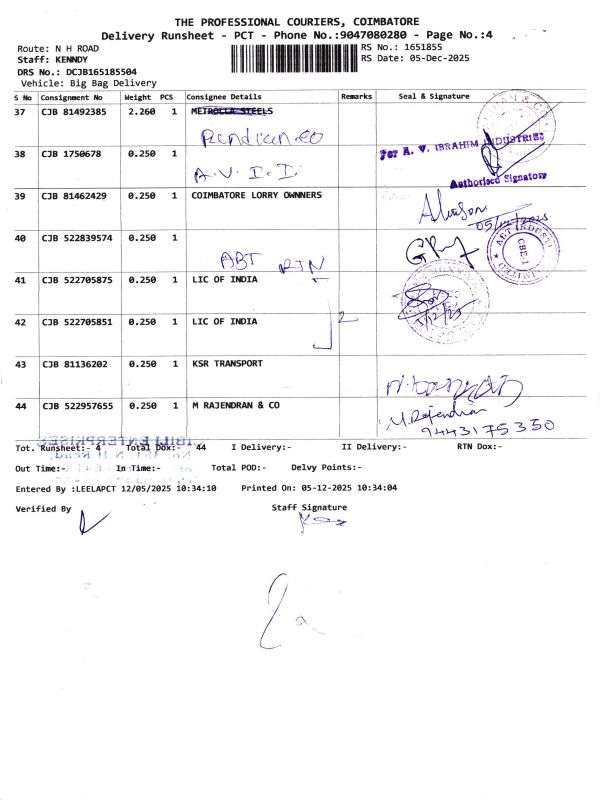 THE PROFESSIONAL COURIERS, COIMBATORE
Delivery Runsheet - PCT - Phone No.:9047080280 - Page No.:4
Route: N H ROAD
RS No.: 1651855
Staff: KENNDY
RS Date: 05-Dec-2025
DRS No.: DCJB165185504
Vehicle: Big Bag Delivery
S No Consignment No Weight PCS Consignee Details Remarks Seal & Signature
37 CJB 81492385 2.260 1 METROLLA STEELS
38 CJB 1750678 0.250 1 A.V.I.I.
For A. V. IBRAHIM INDUSTRIES
Authorised Signatory
39 CJB 81462429 0.250 1 COIMBATORE LORRY OWNNERS
05/12/2025
40 CJB 522839574 0.250 1
ABT RTN
ABT INDUST
LIMITED
CBE-1
41 CJB 522705875 0.250 1 LIC OF INDIA
42 CJB 522705851 0.250 1 LIC OF INDIA
2
43 CJB 81136202 0.250 1 KSR TRANSPORT
44 CJB 522957655 0.250 1 M RAJENDRAN & CO
M.Rajendran
9443175350
Tot. Runsheet:- 4 Total Dox:- 44 I Delivery:- II Delivery:- RTN Dox:-
Out Time:- In Time:- Total POD:- Delvy Points:-
Entered By :LEELAPCT 12/05/2025 10:34:10 Printed On: 05-12-2025 10:34:04
Verified By Staff Signature